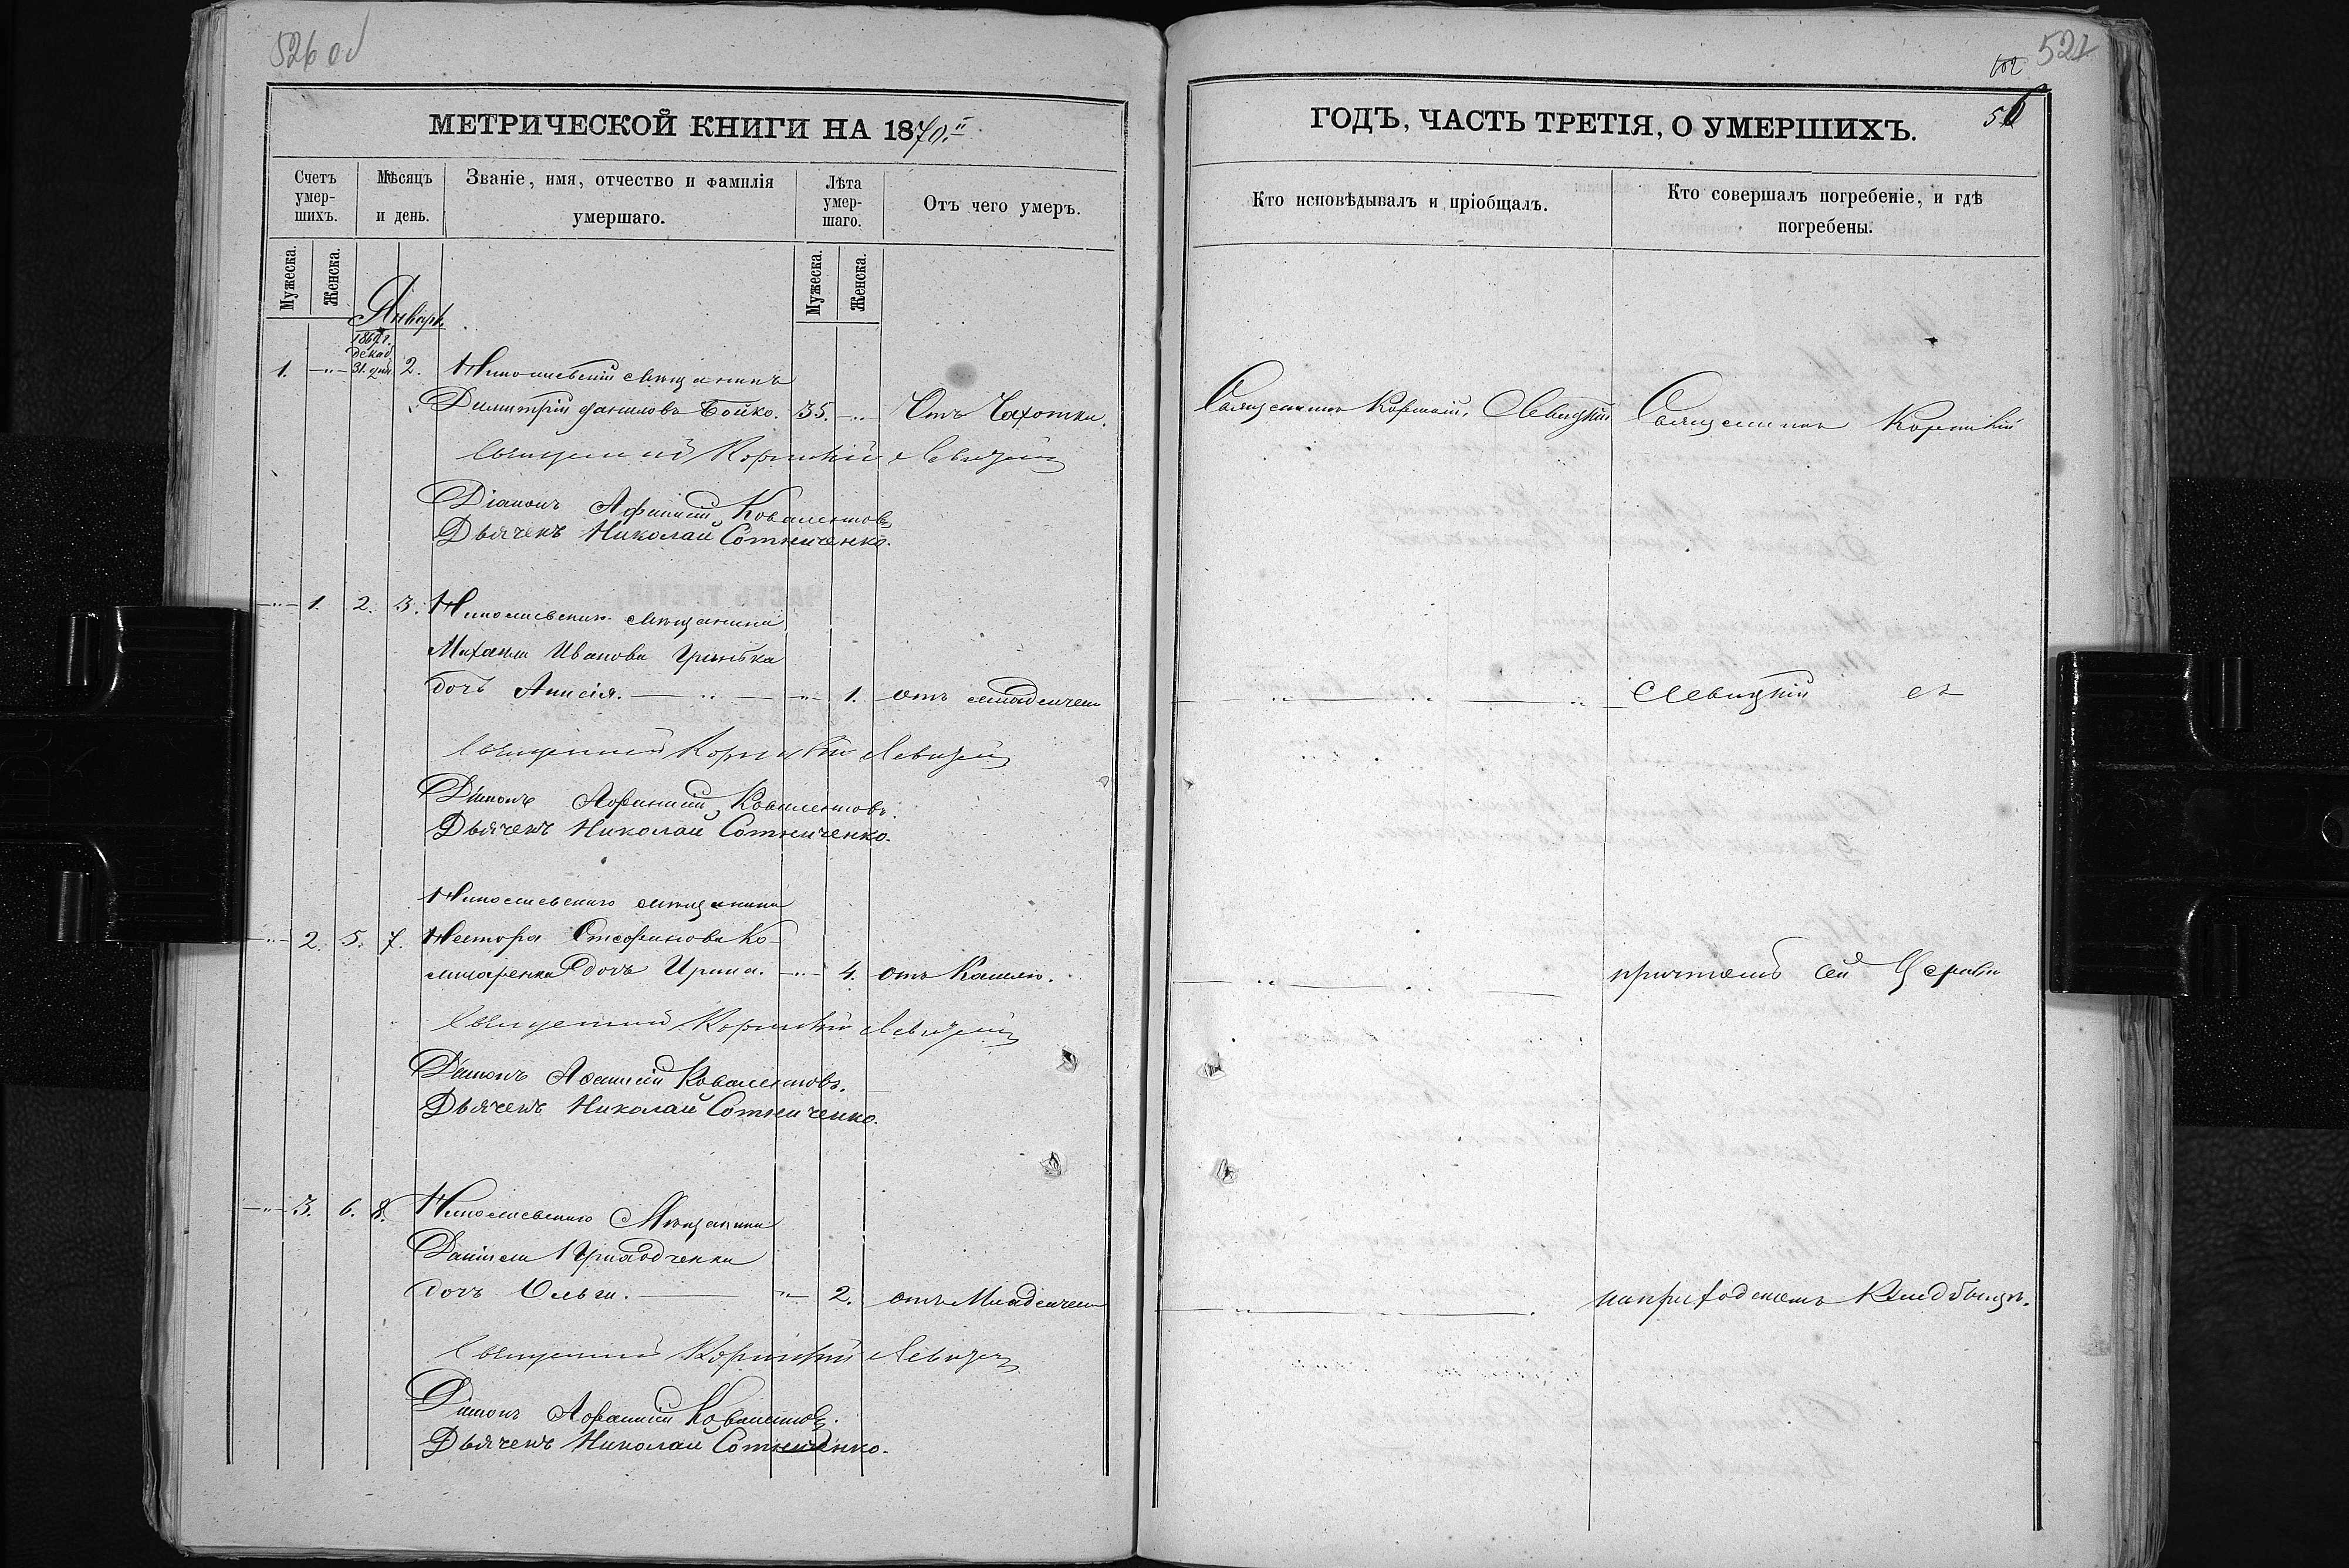 526 об
МЕТРИЧЕСКОЙ КНИГИ НА 1870.й
Счетъ умер-шихъ.
Мѣсяцъ и день.
Званіе, имя, отчество и фамилія умершаго.
Лѣта умер-шаго.
Отъ чего умеръ.
Мужеска.
Женска.
Мужеска.
Женска.
Январь
1869 г.
декаб.
1. —"— 31. дня 2. Николаевскій мѣщанинъ
Димитрій Даниловъ Бойко. 35. —" Отъ Чахотки.
Священникъ Корнилій Левицкій
Діаконъ Афанасій Ковалентовъ
Дьячекъ Николай Сотниченко.
—"— 1. 2. 3. Николаевскаго мѣщанина
Михаила Иванова
дочь Анисія. — " — " 1. отъ младенчес
Священникъ Корнилій Левицкій
Діаконъ Афанасій Ковалентовъ.
Дьячекъ Николай Сотниченко.
Николаевскаго мѣщанина
—"— 2. 5. 7. Нестора Стефанова Ко-
дочь Ирина. —"— 4. отъ Кашлю.
Священникъ Корнилій Левицкій
Діаконъ Афанасій Ковалентовъ.
Дьячекъ Николай Сотниченко.
—"— 3. 6. 8. Николаевскаго Мѣщанина
Даніила
дочь Ольга. — "— 2. отъ Младенчес
Священникъ Корнилій Левицкій
Діаконъ Афанасій Ковалентовъ.
Дьячекъ Николай Сотниченко.
527
602
ГОДЪ, ЧАСТЬ ТРЕТІЯ, О УМЕРШИХЪ.
Кто исповѣдывалъ и пріобщалъ.
Кто совершалъ погребеніе, и гдѣ погребены.
Священникъ Корнилій Левицкій Священникъ Корнилій
— " — " — " Левицкій съ
— " — " — причтомъ сей Церкви
— " — . на приходскомъ Кладбищѣ.